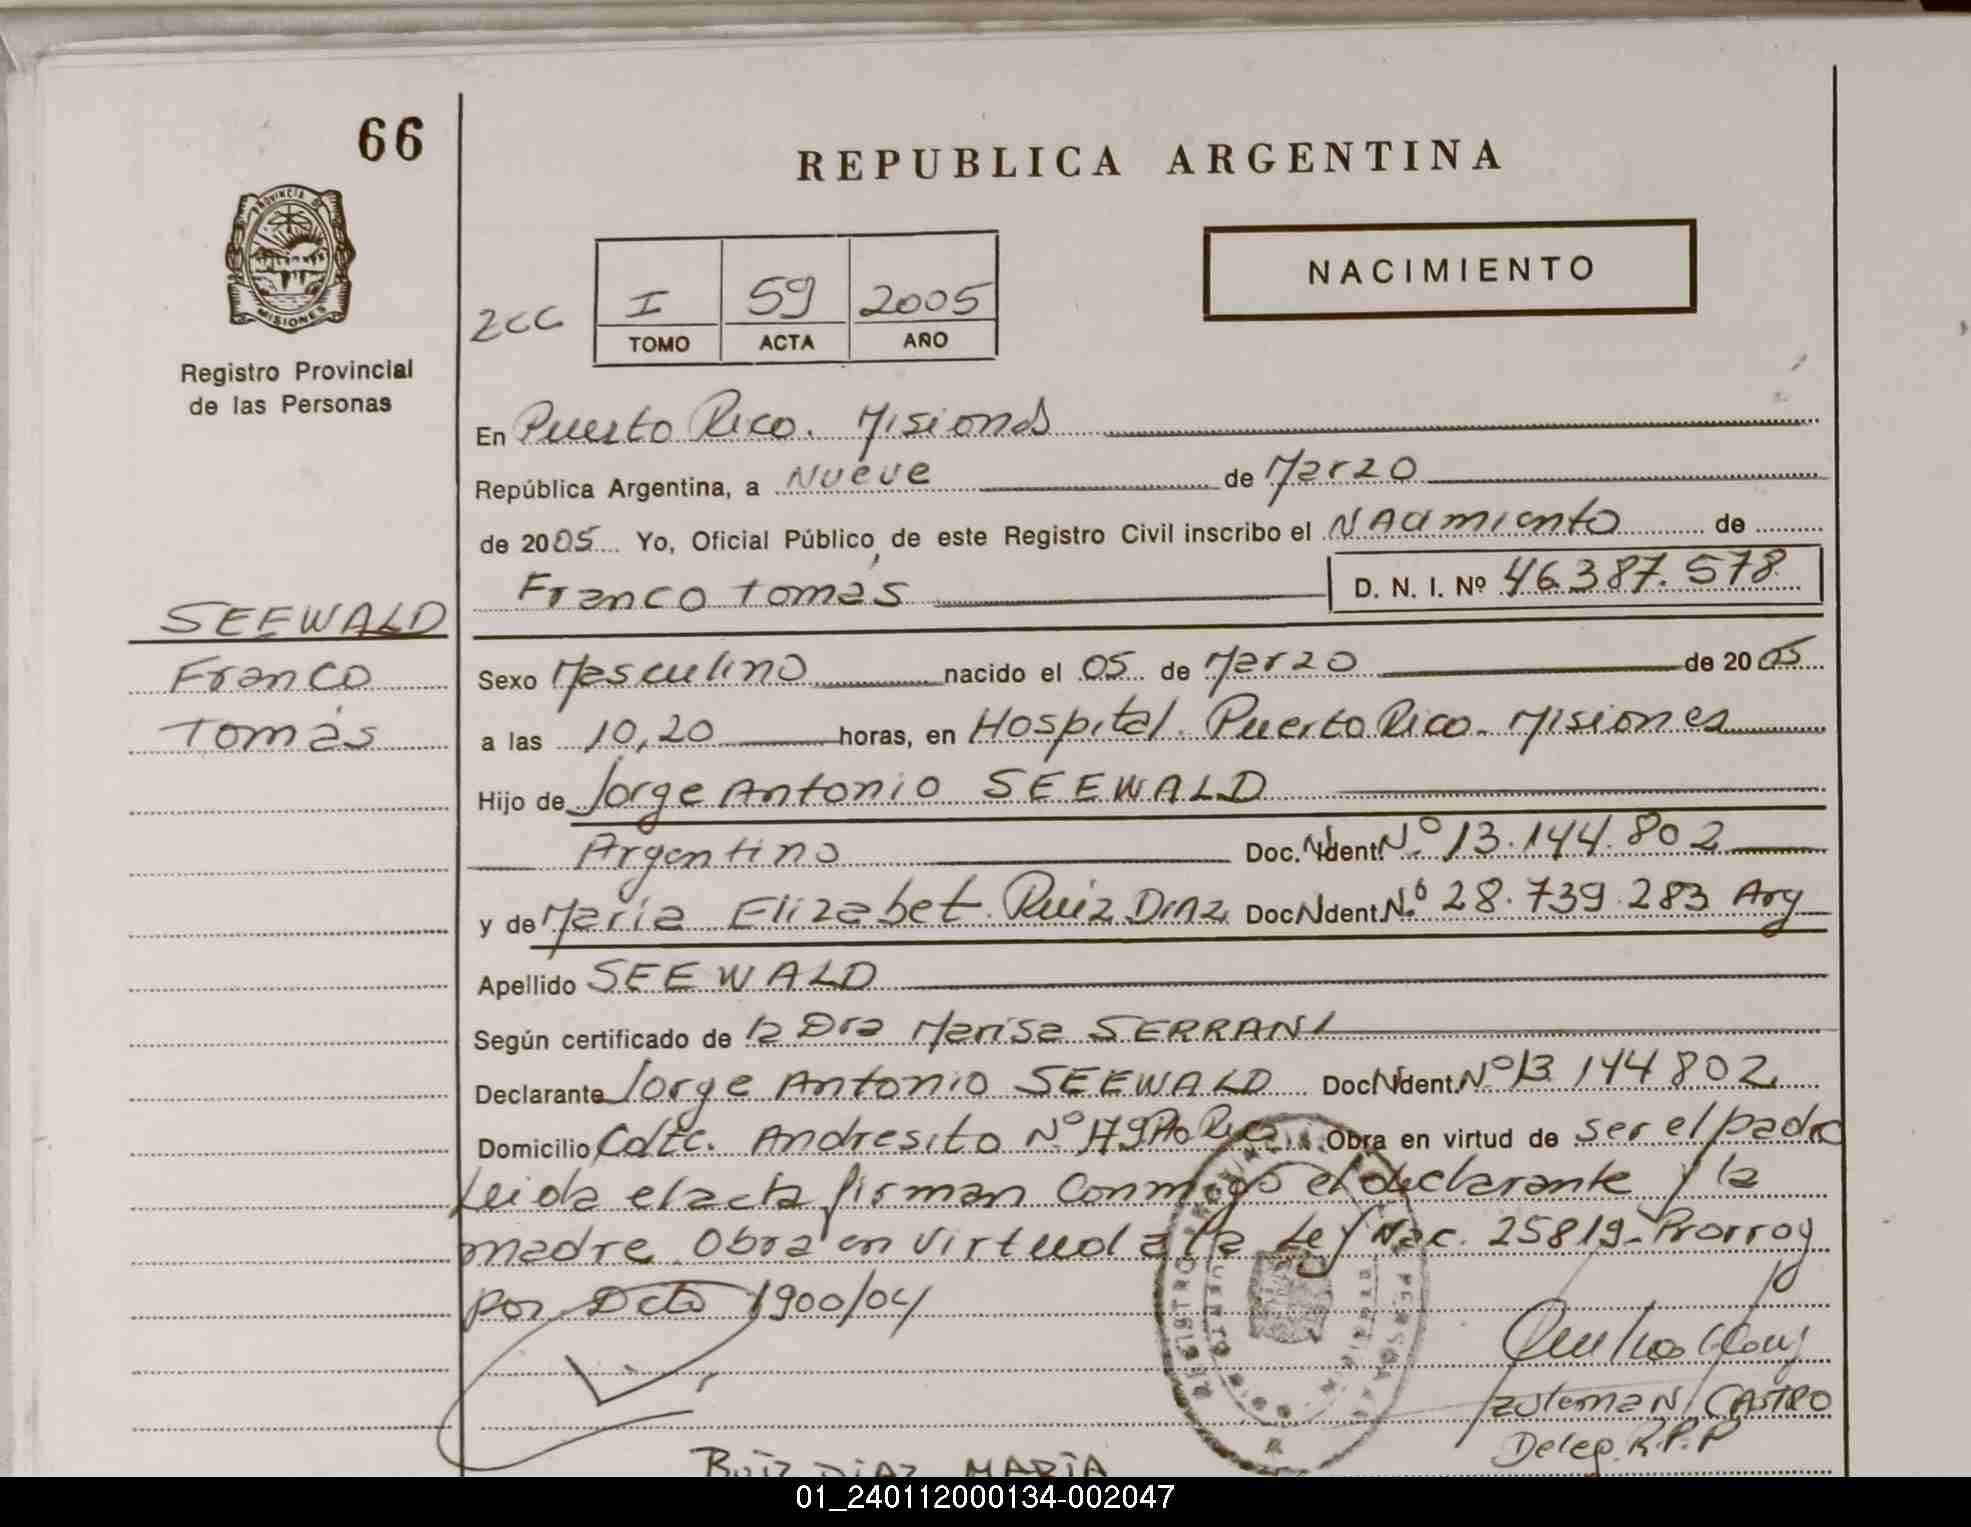 66
REPUBLICA ARGENTINA
PROVINCIA DE
MISIONES
Registro Provincial
de las Personas
NACIMIENTO
2CC
I 59 2005
TOMO ACTA AÑO
En Puerto Rico. Misiones
República Argentina, a Nueve de Marzo
de 2005 Yo, Oficial Público de este Registro Civil inscribo el NAcimiento de
Franco Tomás D. N. I. Nº 46.387.578
SEEWALD
Franco
Tomás
Sexo Masculino nacido el 05 de Marzo de 2005
a las 10,20 horas, en Hospital. Puerto Rico. Misiones
Hijo de Jorge Antonio SEEWALD
Argentino Doc. Ident. Nº 13.144.802
y de María Elizabet Ruiz Diaz Doc Ident. Nº 28.739.283 Arg
Apellido SEEWALD
Según certificado de la Dra Marisa SERRANI
Declarante Jorge Antonio SEEWALD Doc Ident. Nº 13 144 802
Domicilio Andresito Nº Obra en virtud de ser el padre
Leida el acta firman Conmigo el declarante y la
madre Obra en virtud a la Ley Nac. 25819 - Prorrog
por Dcto 1900/04
CASTRO
Deleg. R.P.P
RUIZ DIAZ MARÍA
01_240112000134-002047